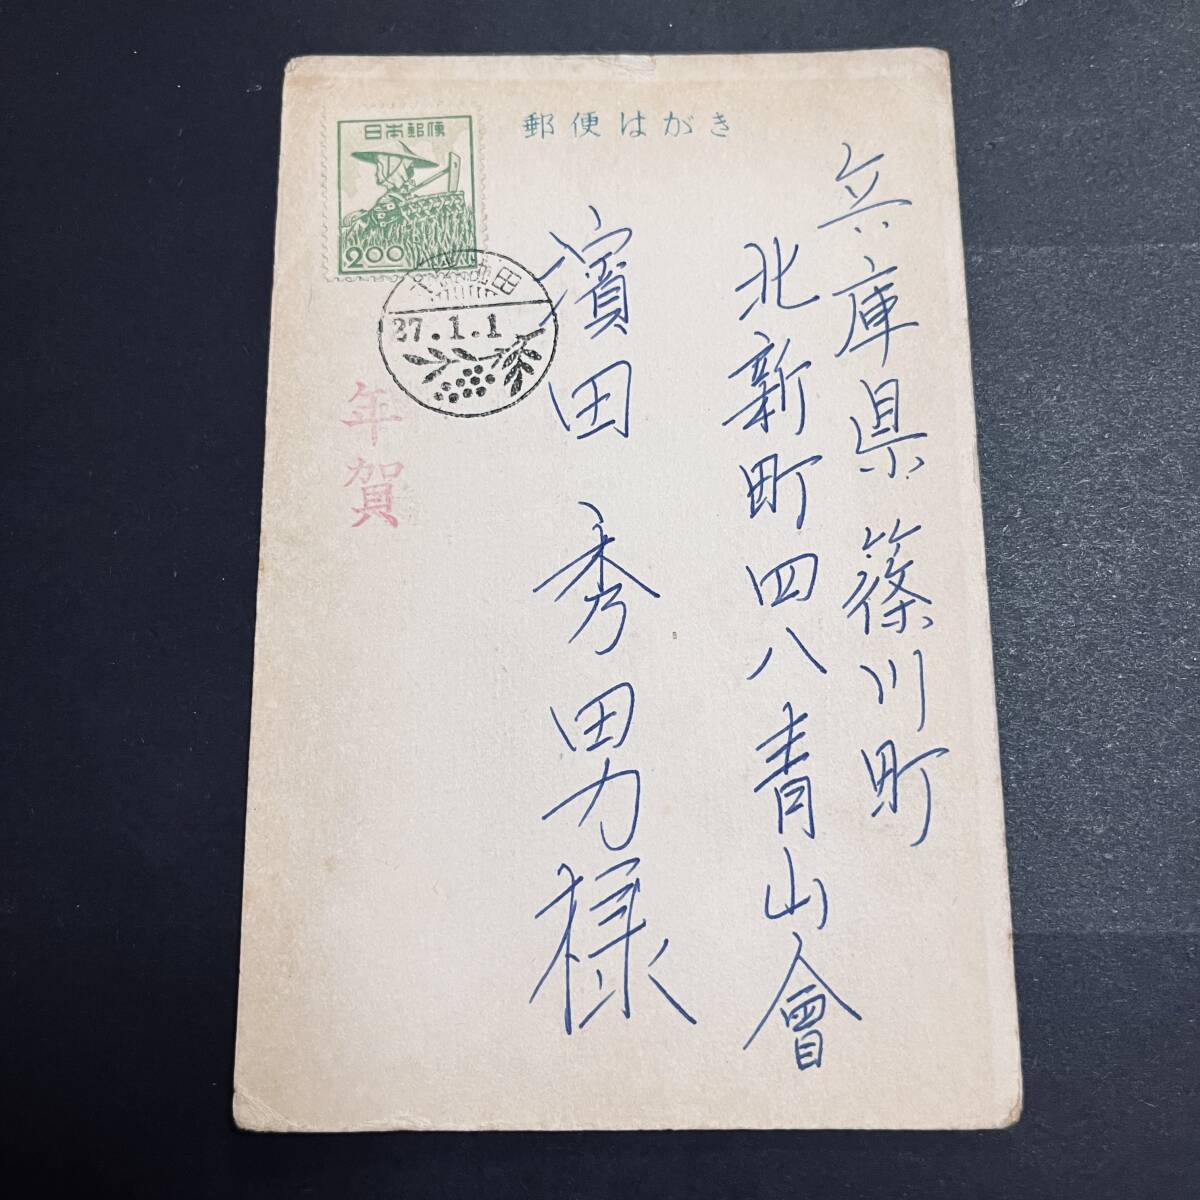 郵便はがき
日本郵便
2.00
27.1.1
年賀
兵庫県篠川町
北新町四八青山會
濱田秀男様